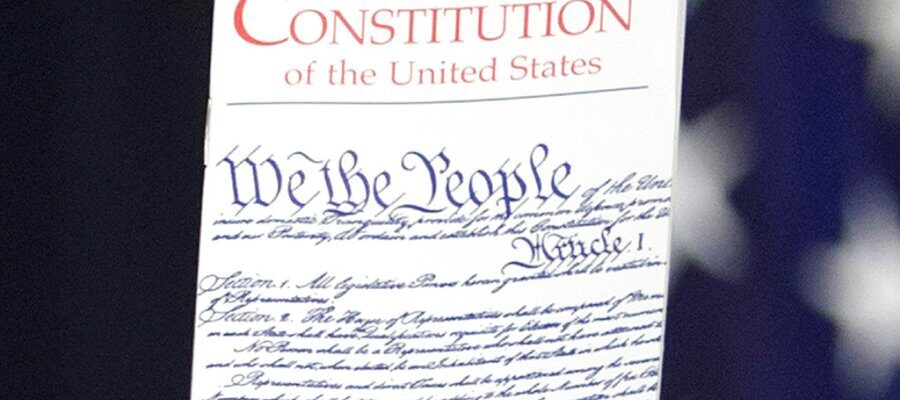 CONSTITUTION
of the United States
We the People of the Uni
insure domestic Tranquility, provide for the common defence, promo
and our Posterity, do ordain and establish this Constitution for the U
Article I.
Section. 1. All legislative Powers herein granted shall be vested in
of Representatives.
Section. 2. The House of Representatives shall be composed of Mem
in each State shall have the Qualifications requisite for Electors of the most numerou
No Person shall be a Representative who shall not have attained t
and who shall not, when elected, be an Inhabitant of that State in which he
Representatives and direct Taxes shall be apportioned among the